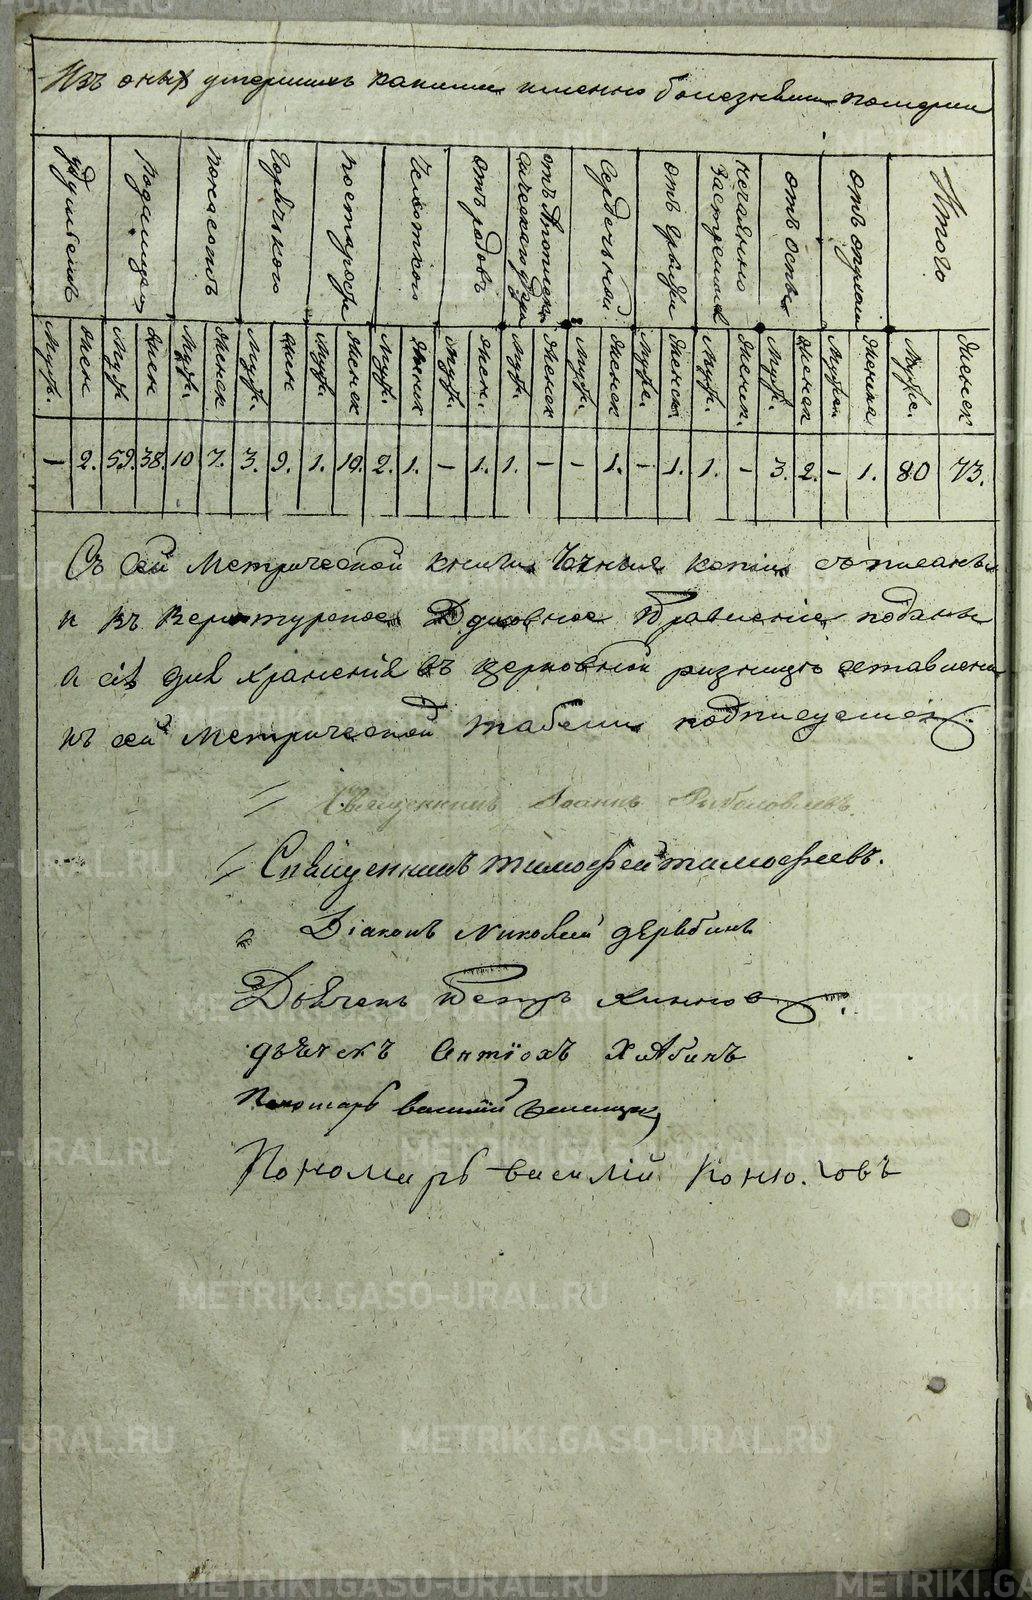 Изъ оныхъ умершихъ какими именно болезнями померли
удушьемъ
Родимцемъ
поносомъ
Горячкою
по старости
Чахоткою
отъ родовъ
отъ Апоплексическаго удара
Сердечной
отъ грыжи
нечаянно застрелился
отъ оспы
отъ опухоли
Итого
Муж. Женск Муж Женск Муж. Женск Муж. Женск Муж. Женск Муж. Женск Муж. Женск. Муж. Женск Муж. Женск Муж. Женск. Муж. Женск. Муж. Женск Мужск Женск Муж. Женск
— 2. 59. 38. 10 7. 3. 9. 1. 10. 2. 1. — 1. 1. — — 1. — 1. 1. — 3. 2. — 1. 80 73.
Съ сей Метрической книги точныя копии списаны
и въ Верхотурское Духовное Правление поданы
а сія для храненія въ церковной ризнице оставлена
къ сей Метрической табели подписуемся.
Священникъ Иоаннъ
Священникъ Тимофей Тимофеевъ.
Діаконъ Николай дерябинъ
Дьячекъ Петръ
дьячекъ Антіохъ Хлябинъ
Пономарь василій
Пономарь василій Конюховъ